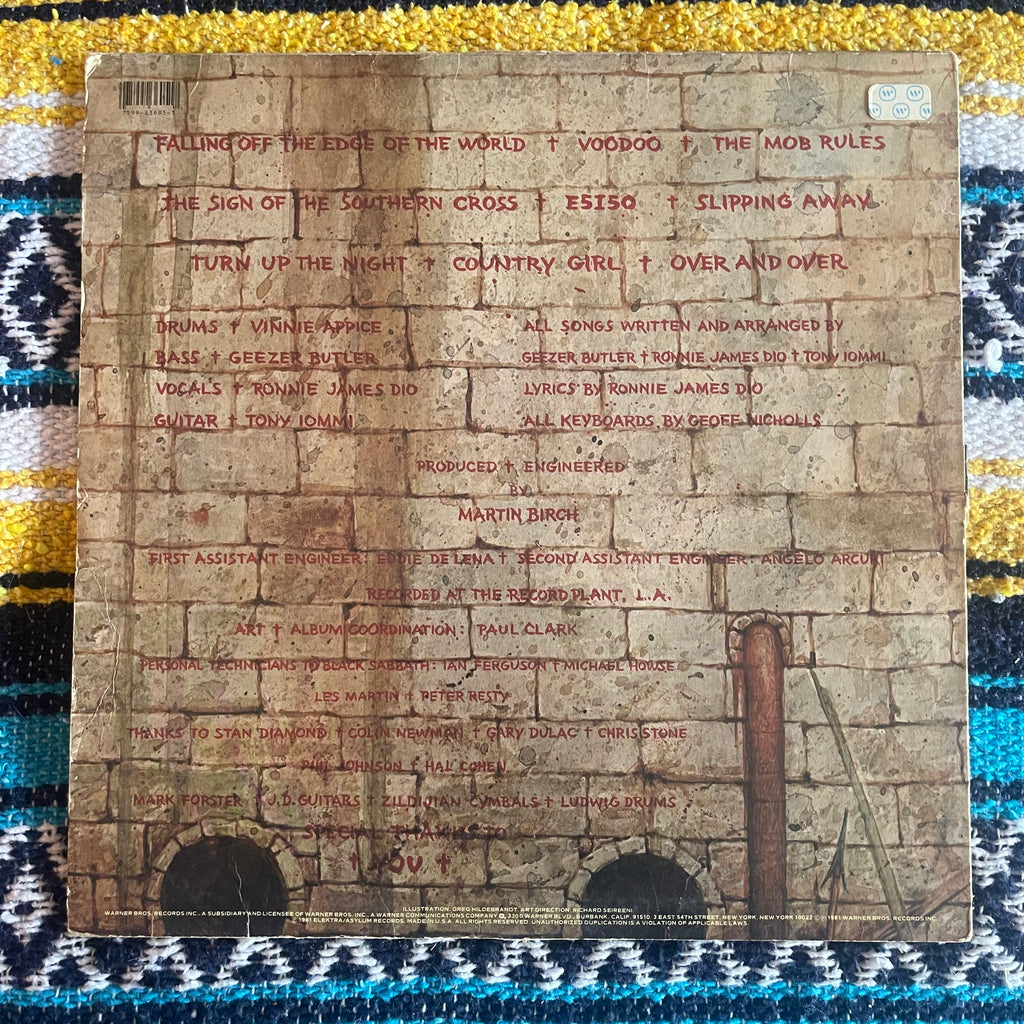 7599-23605-1
FALLING OFF THE EDGE OF THE WORLD † VOODOO † THE MOB RULES
THE SIGN OF THE SOUTHERN CROSS † E5150 † SLIPPING AWAY
TURN UP THE NIGHT † COUNTRY GIRL † OVER AND OVER
DRUMS † VINNIE APPICE
BASS † GEEZER BUTLER
VOCALS † RONNIE JAMES DIO
GUITAR † TONY IOMMI
ALL SONGS WRITTEN AND ARRANGED BY
GEEZER BUTLER † RONNIE JAMES DIO † TONY IOMMI
LYRICS BY RONNIE JAMES DIO
ALL KEYBOARDS BY GEOFF NICHOLLS
PRODUCED † ENGINEERED
BY
MARTIN BIRCH
FIRST ASSISTANT ENGINEER: EDDIE DE LENA † SECOND ASSISTANT ENGINEER: ANGELO ARCURI
RECORDED AT THE RECORD PLANT, L.A.
ART † ALBUM COORDINATION: PAUL CLARK
PERSONAL TECHNICIANS TO BLACK SABBATH: IAN FERGUSON † MICHAEL HOWSE
LES MARTIN † PETER RESTY
THANKS TO STAN DIAMOND † COLIN NEWMAN † GARY DULAC † CHRIS STONE
PHIL JOHNSON † HAL COHEN
MARK FORSTER † J.D. GUITARS † ZILDIJIAN CYMBALS † LUDWIG DRUMS
SPECIAL THANKS TO
† YOU †
ILLUSTRATION: GREG HILDEBRANDT. ART DIRECTION: RICHARD SEIREENI
WARNER BROS. RECORDS INC., A SUBSIDIARY AND LICENSEE OF WARNER BROS. INC., A WARNER COMMUNICATIONS COMPANY, 3300 WARNER BLVD., BURBANK, CALIF. 91510. 3 EAST 54TH STREET, NEW YORK, NEW YORK 10022 © ℗ 1981 WARNER BROS. RECORDS INC.
℗ 1981 ELEKTRA/ASYLUM RECORDS. MADE IN U.S.A. ALL RIGHTS RESERVED. UNAUTHORIZED DUPLICATION IS A VIOLATION OF APPLICABLE LAWS.